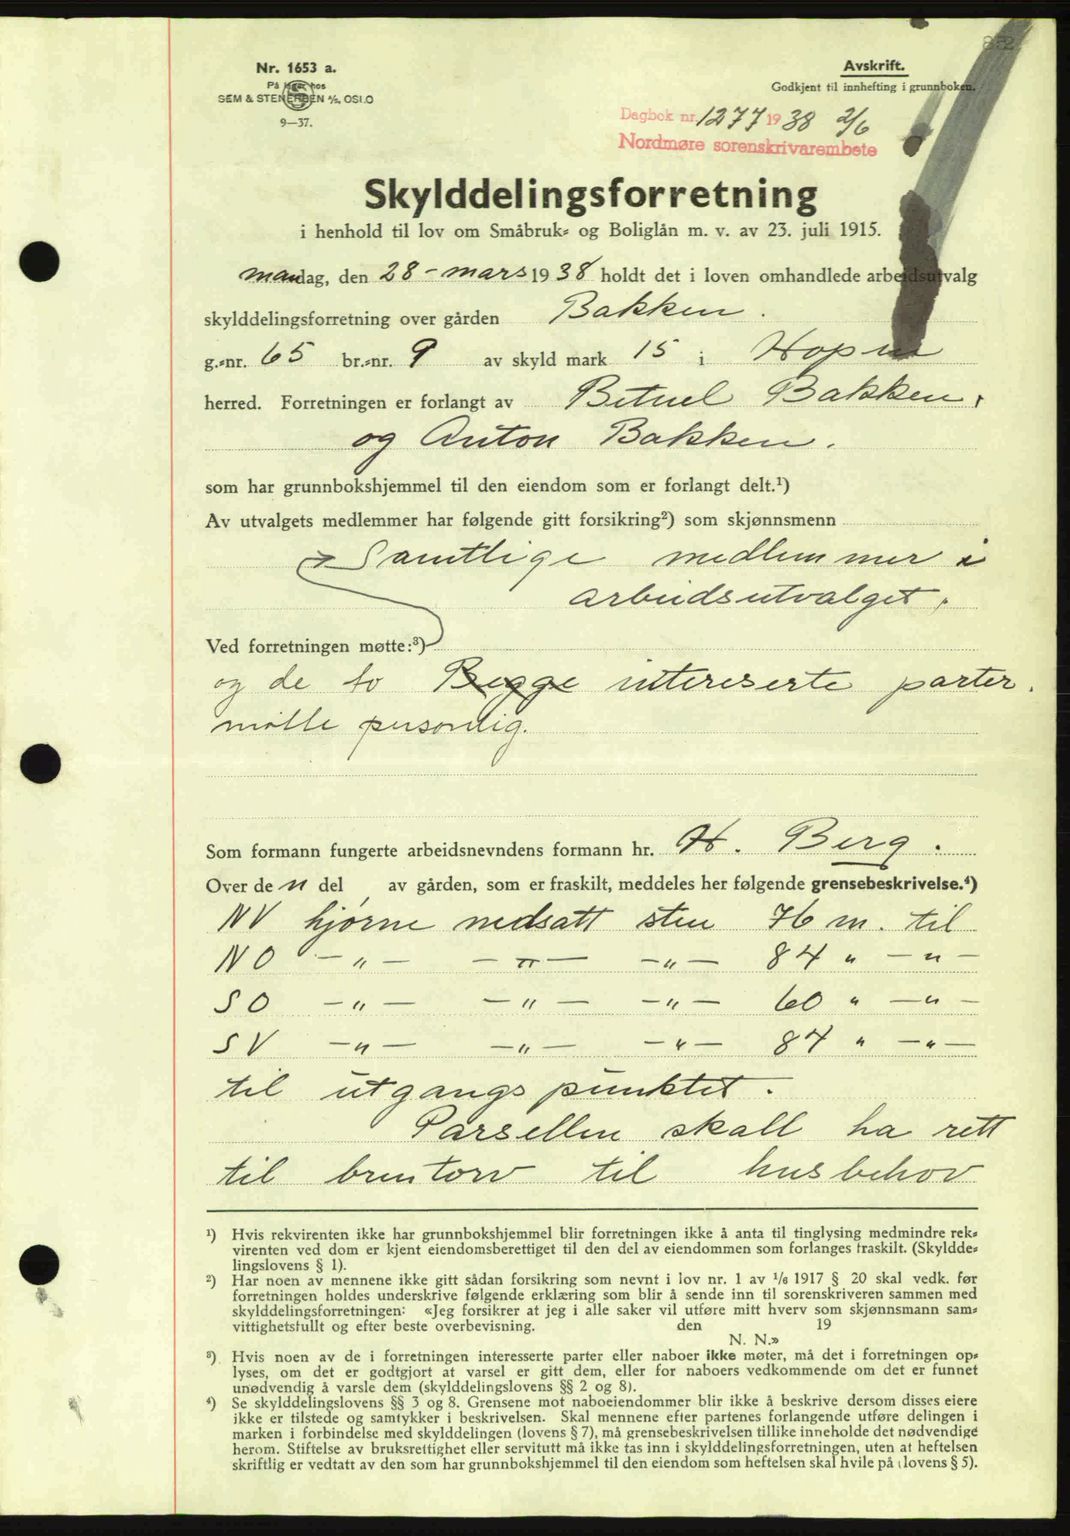 852
Nr. 1653 a.
På lager hos
SEM & STENERSEN A/S, OSLO
9—37.
Avskrift.
Godkjent til innhefting i grunnboken.
Dagbok nr. 1277 1938 2/6
Nordmøre sorenskrivarembete
Skylddelingsforretning
i henhold til lov om Småbruk- og Boliglån m. v. av 23. juli 1915.
mandag, den 28 - mars 1938 holdt det i loven omhandlede arbeidsutvalg
skylddelingsforretning over gården Bakken.
g.-nr. 65 br.-nr. 9 av skyld mark 15 i Hopen
herred. Forretningen er forlangt av Betuel Bakken,
og Anton Bakken.
som har grunnbokshjemmel til den eiendom som er forlangt delt.¹)
Av utvalgets medlemmer har følgende gitt forsikring²) som skjønnsmenn
Samtlige medlemmer i
arbeidsutvalget.
Ved forretningen møtte:³)
og de to Begge intereserte parter.
møtte personlig.
Som formann fungerte arbeidsnevndens formann hr. H. Berg.
Over den del av gården, som er fraskilt, meddeles her følgende grensebeskrivelse.⁴)
NV hjørne nedsatt sten 76 m. til
NO — „ — — „ — — „ — 84 „ — „ —
SO — „ — — „ — — „ — 60 „ — „ —
SV — „ — — „ — — „ — 84 „ — „ —
til utgangspunktet.
Parsellen skall ha rett
til brentorv til husbehov
¹) Hvis rekvirenten ikke har grunnbokshjemmel blir forretningen ikke å anta til tinglysing medmindre rek-
virenten ved dom er kjent eiendomsberettiget til den del av eiendommen som forlanges fraskilt. (Skyldde-
lingslovens § 1).
²) Har noen av mennene ikke gitt sådan forsikring som nevnt i lov nr. 1 av 1/6 1917 § 20 skal vedk. før
forretningen holdes underskrive følgende erklæring som blir å sende inn til sorenskriveren sammen med
skylddelingsforretningen: «Jeg forsikrer at jeg i alle saker vil utføre mitt hverv som skjønnsmann sam-
vittighetsfullt og efter beste overbevisning. den 19
N. N.»
³) Hvis noen av de i forretningen interesserte parter eller naboer ikke møter, må det i forretningen op-
lyses, om det er godtgjort at varsel er gitt dem, eller for naboers vedkommende om det er funnet
unødvendig å varsle dem (skylddelingslovens §§ 2 og 8).
⁴) Se skylddelingslovens §§ 3 og 8. Grensene mot naboeiendommer blir ikke å beskrive dersom disses eiere
ikke er tilstede og samtykker i beskrivelsen. Skal mennene efter partenes forlangende utføre delingen i
marken i forbindelse med skylddelingen (lovens § 7), må grensebeskrivelsen tillike inneholde det nødvendige
herom. Stiftelse av bruksrettighet eller servitutt må ikke tas inn i skylddelingsforretningen, uten at heftelsen
skriftlig er vedtatt av den som har grunnbokshjemmel til den eiendom som heftelsen skal hvile på (lovens § 5).